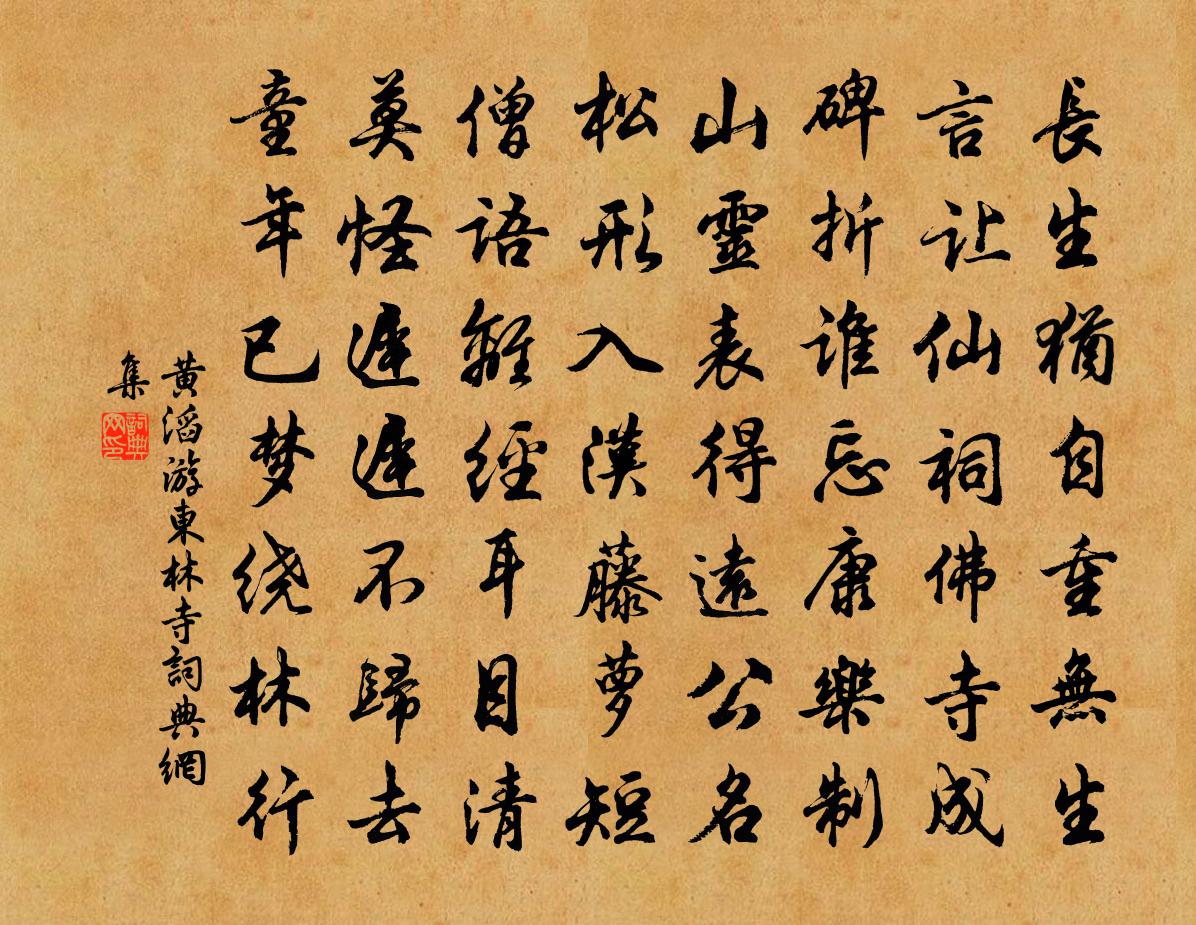 長生猶自重無生
言让仙祠佛寺成
碑折谁忘康樂制
山靈表得遠公名
松形入漢藤萝短
僧語離經耳目清
莫怪遲遲不歸去
童年已梦绕林行
黄滔游東林寺詞典網
集
詞典
网印